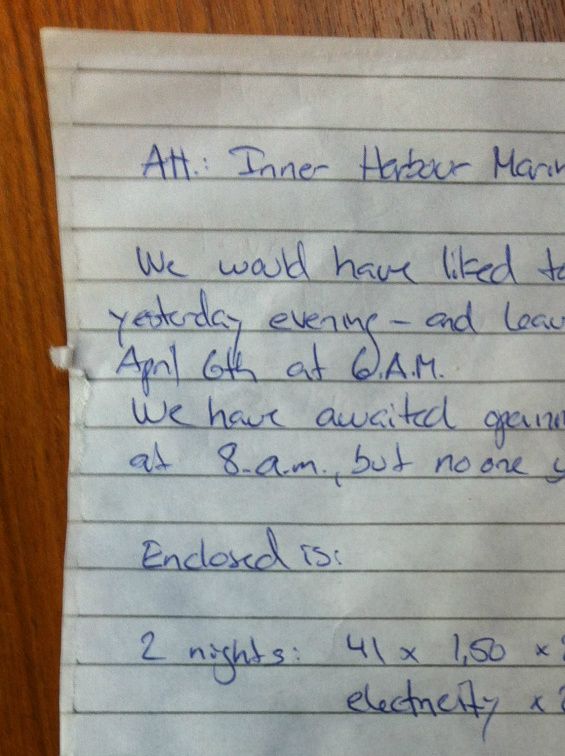 Att.: Inner Harbour Marin
We would have liked to
yesterday evening - and leav
April 6th at 6.A.M.
We have awaited openin
at 8.a.m., but no one y
Enclosed is:
2 nights: 41 x 1,50 x
electricity x